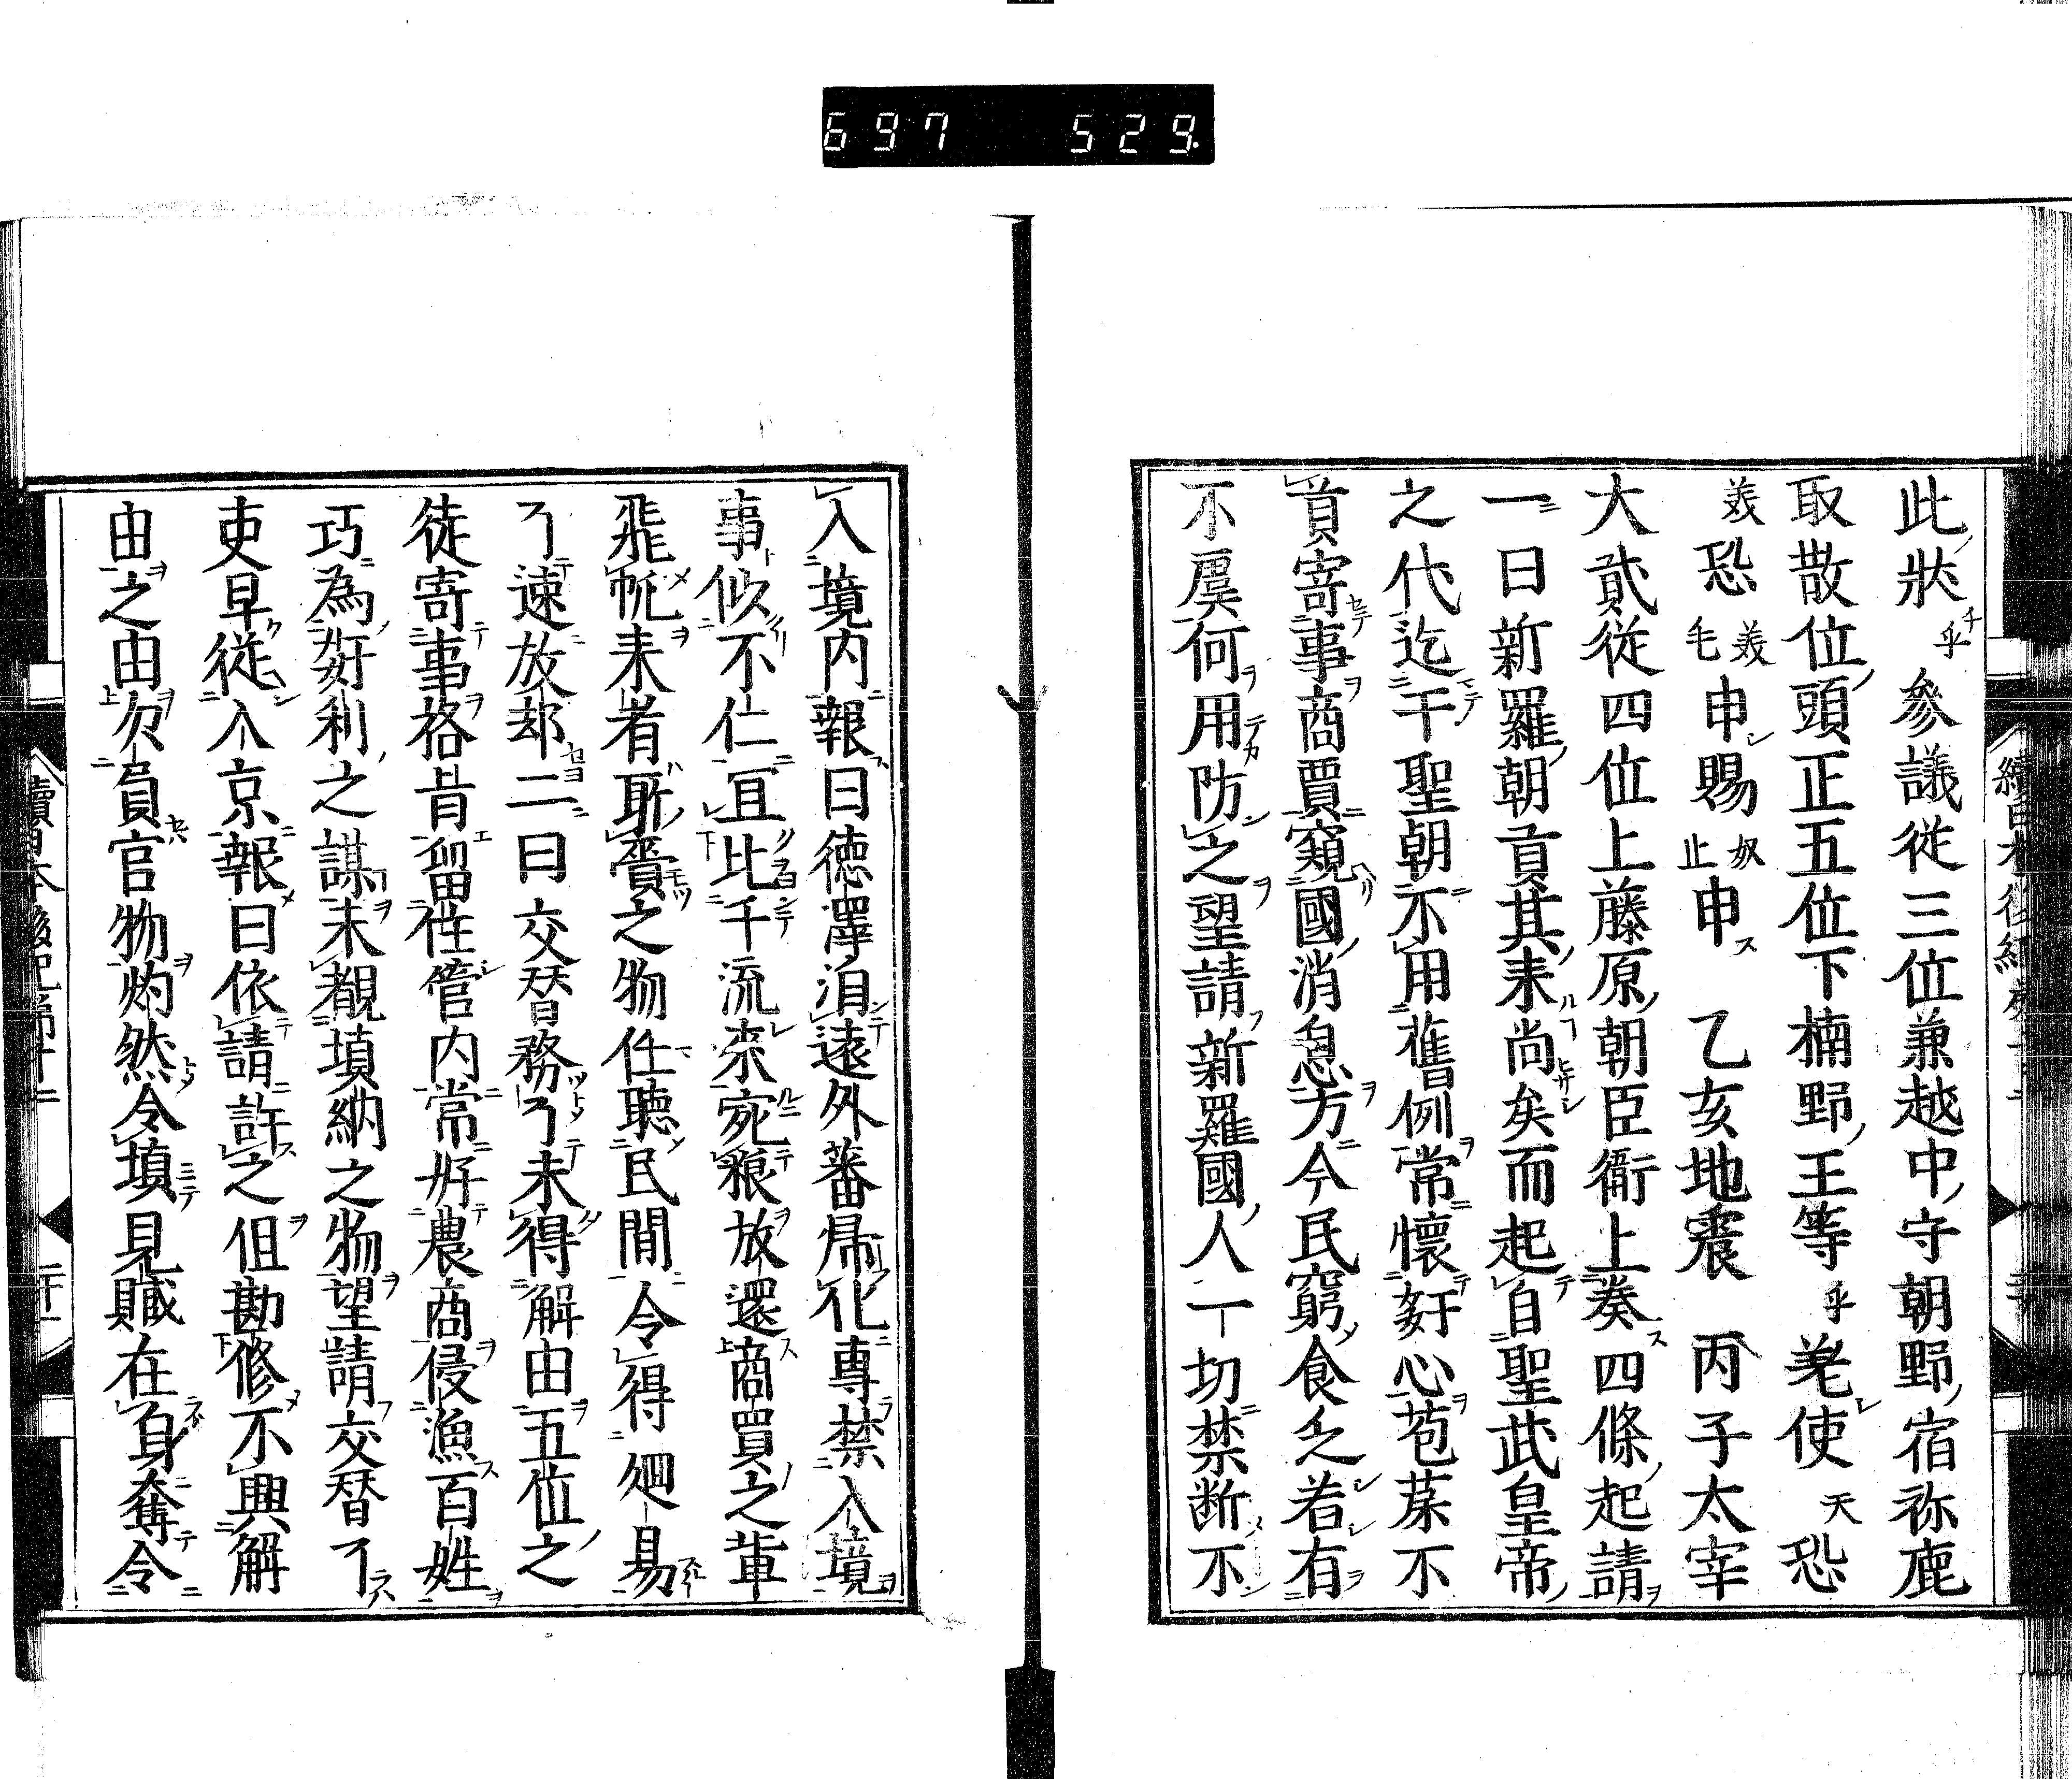 697 529
此狀乎參議從三位兼越中守朝野宿祢鹿
取散位頭正五位下楠野王等乎差使天恐
美恐毛美申賜止奴申 乙亥地震 丙子太宰
大貳從四位上藤原朝臣衞上奏四條起請
一曰新羅朝貢其来尚矣而起自聖武皇帝
之代迄干聖朝不用舊例常懷姧心苞苴不
貢寄事商賈窺國消息方今民窮食乏若有
不虞何用防之望請新羅國人一切禁断不
入境内報曰德澤洎遠外蕃歸化專禁入境
事似不仁冝比于流来宛粮放還商買之輩
飛帆来着所賷之物任聽民間令得廻易
了速放却二曰交替務了未得解由五位之
徒寄事格旨留住管内常好農商侵漁百姓
巧為姧利之謀未覩填納之物望請交替了
吏早從入京報曰依請許之但勘修不與解
由之由欠負官物灼然令填見贓在身奪令
續日本後紀卷十二
二十一